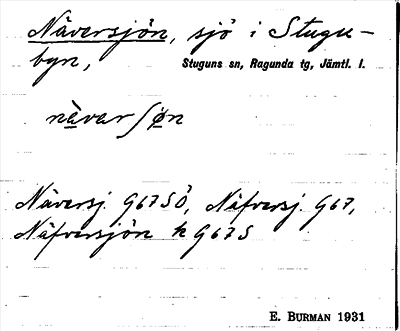 Näversjön, sjö i Stugu-
byn, Stuguns sn, Ragunda tg, Jämtl. l.
nàvarʃøn
Näversj. G67SÖ, Näfversj. G67,
Näfversjön k G67S
E. BURMAN 1931